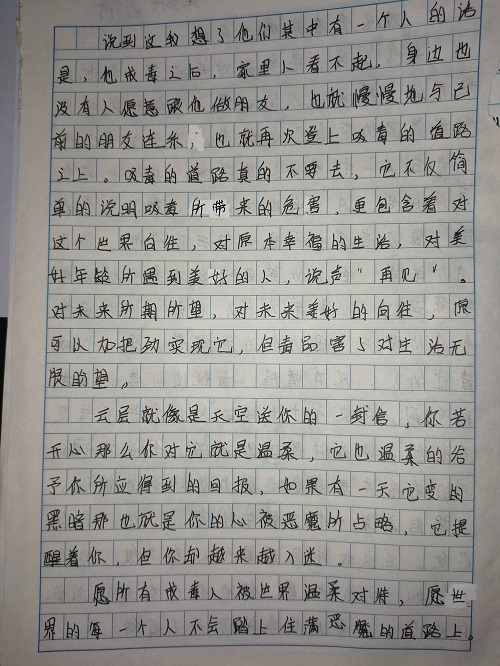 说到这我想了他们其中有一个人的话
是，他戒毒之后，家里人看不起，身边也
没有人愿意跟他做朋友，他就慢慢地与已
前的朋友连系，他就再次登上吸毒的道路
之上。吸毒的道路真的不要去，它不仅简
单的说明吸毒所带来的危害，更包含着对
这个世界白往，对原本幸福的生活，对美
好年龄所遇到美好的人，说声“再见”。
对未来所期所望，对未来美好的向往，原
可以加把劲实现它，但毒品害了对生活无
限的望。
云层就像是天空送你的一封信，你若
开心那么你对它就是温柔，它也温柔的给
予你所应得到的回报，如果有一天它变的
黑暗那也就是你的心被恶魔所占略，它提
醒着你，但你却越来越入迷。
愿所有戒毒人被世界温柔对待，愿世
界的每一个人不会踏上住满恶魔的道路上。